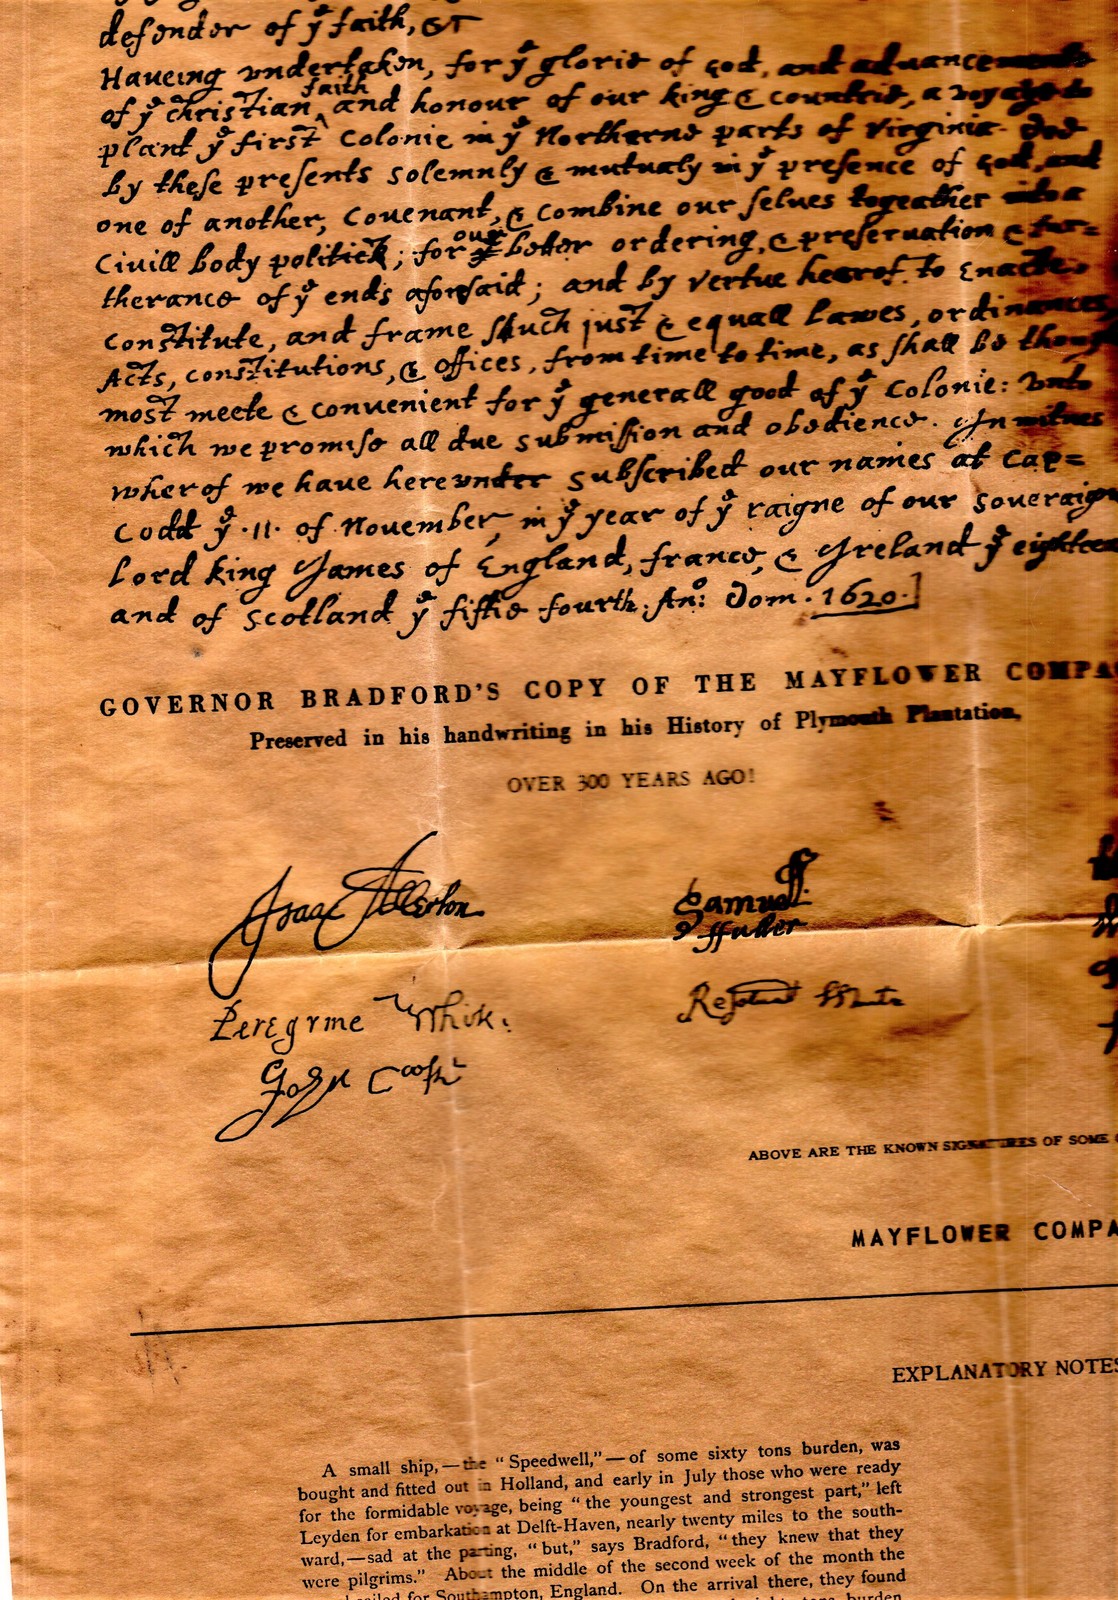 defender of yͤ faith, &c
Haveing undertaken, for yͤ glorie of god, and advancemente
of yͤ christian faith, and honour of our king & countrie, a voyage to
plant yͤ first colonie in yͤ Northerne parts of Virginia. doe
by these presents solemnly & mutualy in yͤ presence of god, and
one of another, covenant, & combine our selves togeather into a
Civill body politick; for our better ordering, & preservation & fur=
therance of yͤ ends aforesaid; and by vertue hearof to enacte,
constitute, and frame shuch just & equall Lawes, ordinances,
Acts, constitutions, & offices, from time to time, as shall be though
most meete & convenient for yͤ generall good of yͤ Colonie: unto
which we promise all due submission and obedience. In witnes
wherof we have hereunder subscribed our names at Cap=
Codd yͤ ·11· of November, in yͤ year of yͤ raigne of our soveraign
Lord king James of England, france, & Ireland yͤ eighteen
and of Scotland yͤ fiftie fourth. Anº: Dom. 1620.]
GOVERNOR BRADFORD'S COPY OF THE MAYFLOWER COMPA
Preserved in his handwriting in his History of Plymouth Plantation,
OVER 300 YEARS AGO!
Isaac Allerton
Samuell
ffuller
Peregrine White.
Resolved White
John Cooke
ABOVE ARE THE KNOWN SIGNATURES OF SOME
MAYFLOWER COMPA
EXPLANATORY NOTES
A small ship,—the "Speedwell,"—of some sixty tons burden, was
bought and fitted out in Holland, and early in July those who were ready
for the formidable voyage, being "the youngest and strongest part," left
Leyden for embarkation at Delft-Haven, nearly twenty miles to the south-
ward,—sad at the parting, "but," says Bradford, "they knew that they
were pilgrims." About the middle of the second week of the month the
sailed for Southampton, England. On the arrival there, they found
tons burden